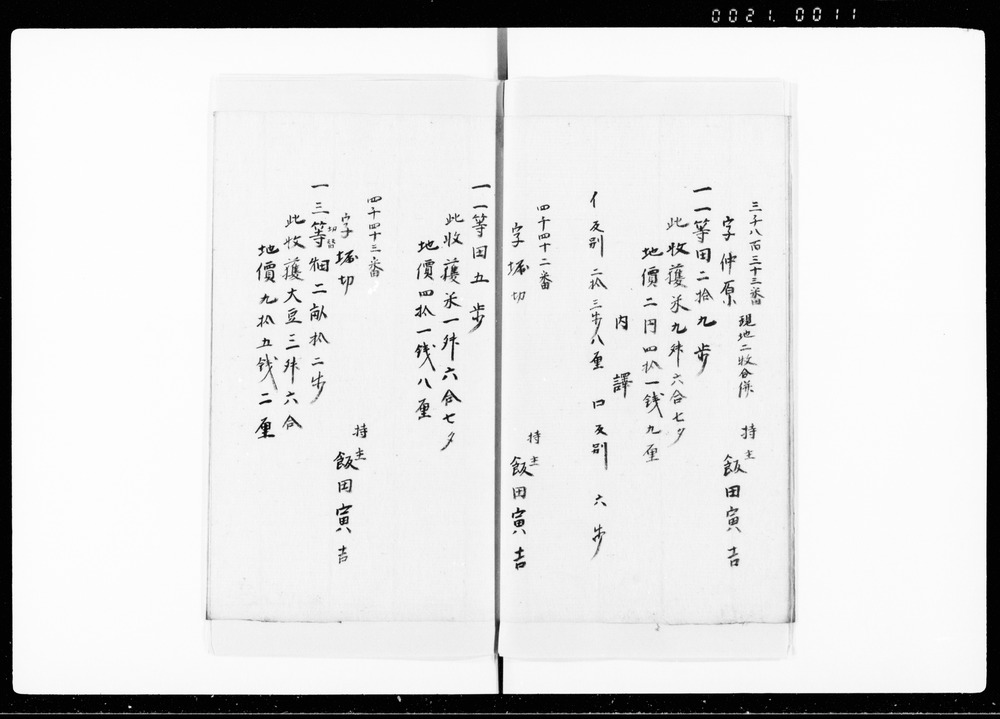 0021.0011
三千八百三十三番 現地二牧合併
字仲原
持主 飯田寅吉
一一等田二拾九歩
此收獲米九舛六合七夕
地價二円四拾一銭九厘
内譯
イ反別 二拾三歩八厘 口反別 六歩
四千四十二番
字堀切
持主 飯田寅吉
一一等田五歩
此收獲米一舛六合七夕
地價四拾一銭八厘
四千四十三番
字堀切
持主 飯田寅吉
一三等切替畑二畝拾二歩
此收獲大豆三舛六合
地價九拾五銭二厘